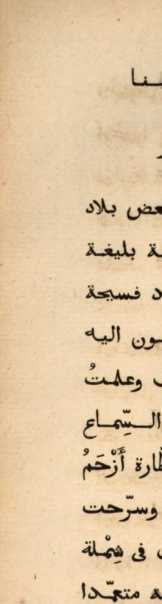 بعض بلاد
ة بليغة
د فسيحة
ـون اليه
وعلمتُ
السِّماع
ـارة أَزْحَمُ
وسرّحت
فى شِمْلة
ـه متعمّدا